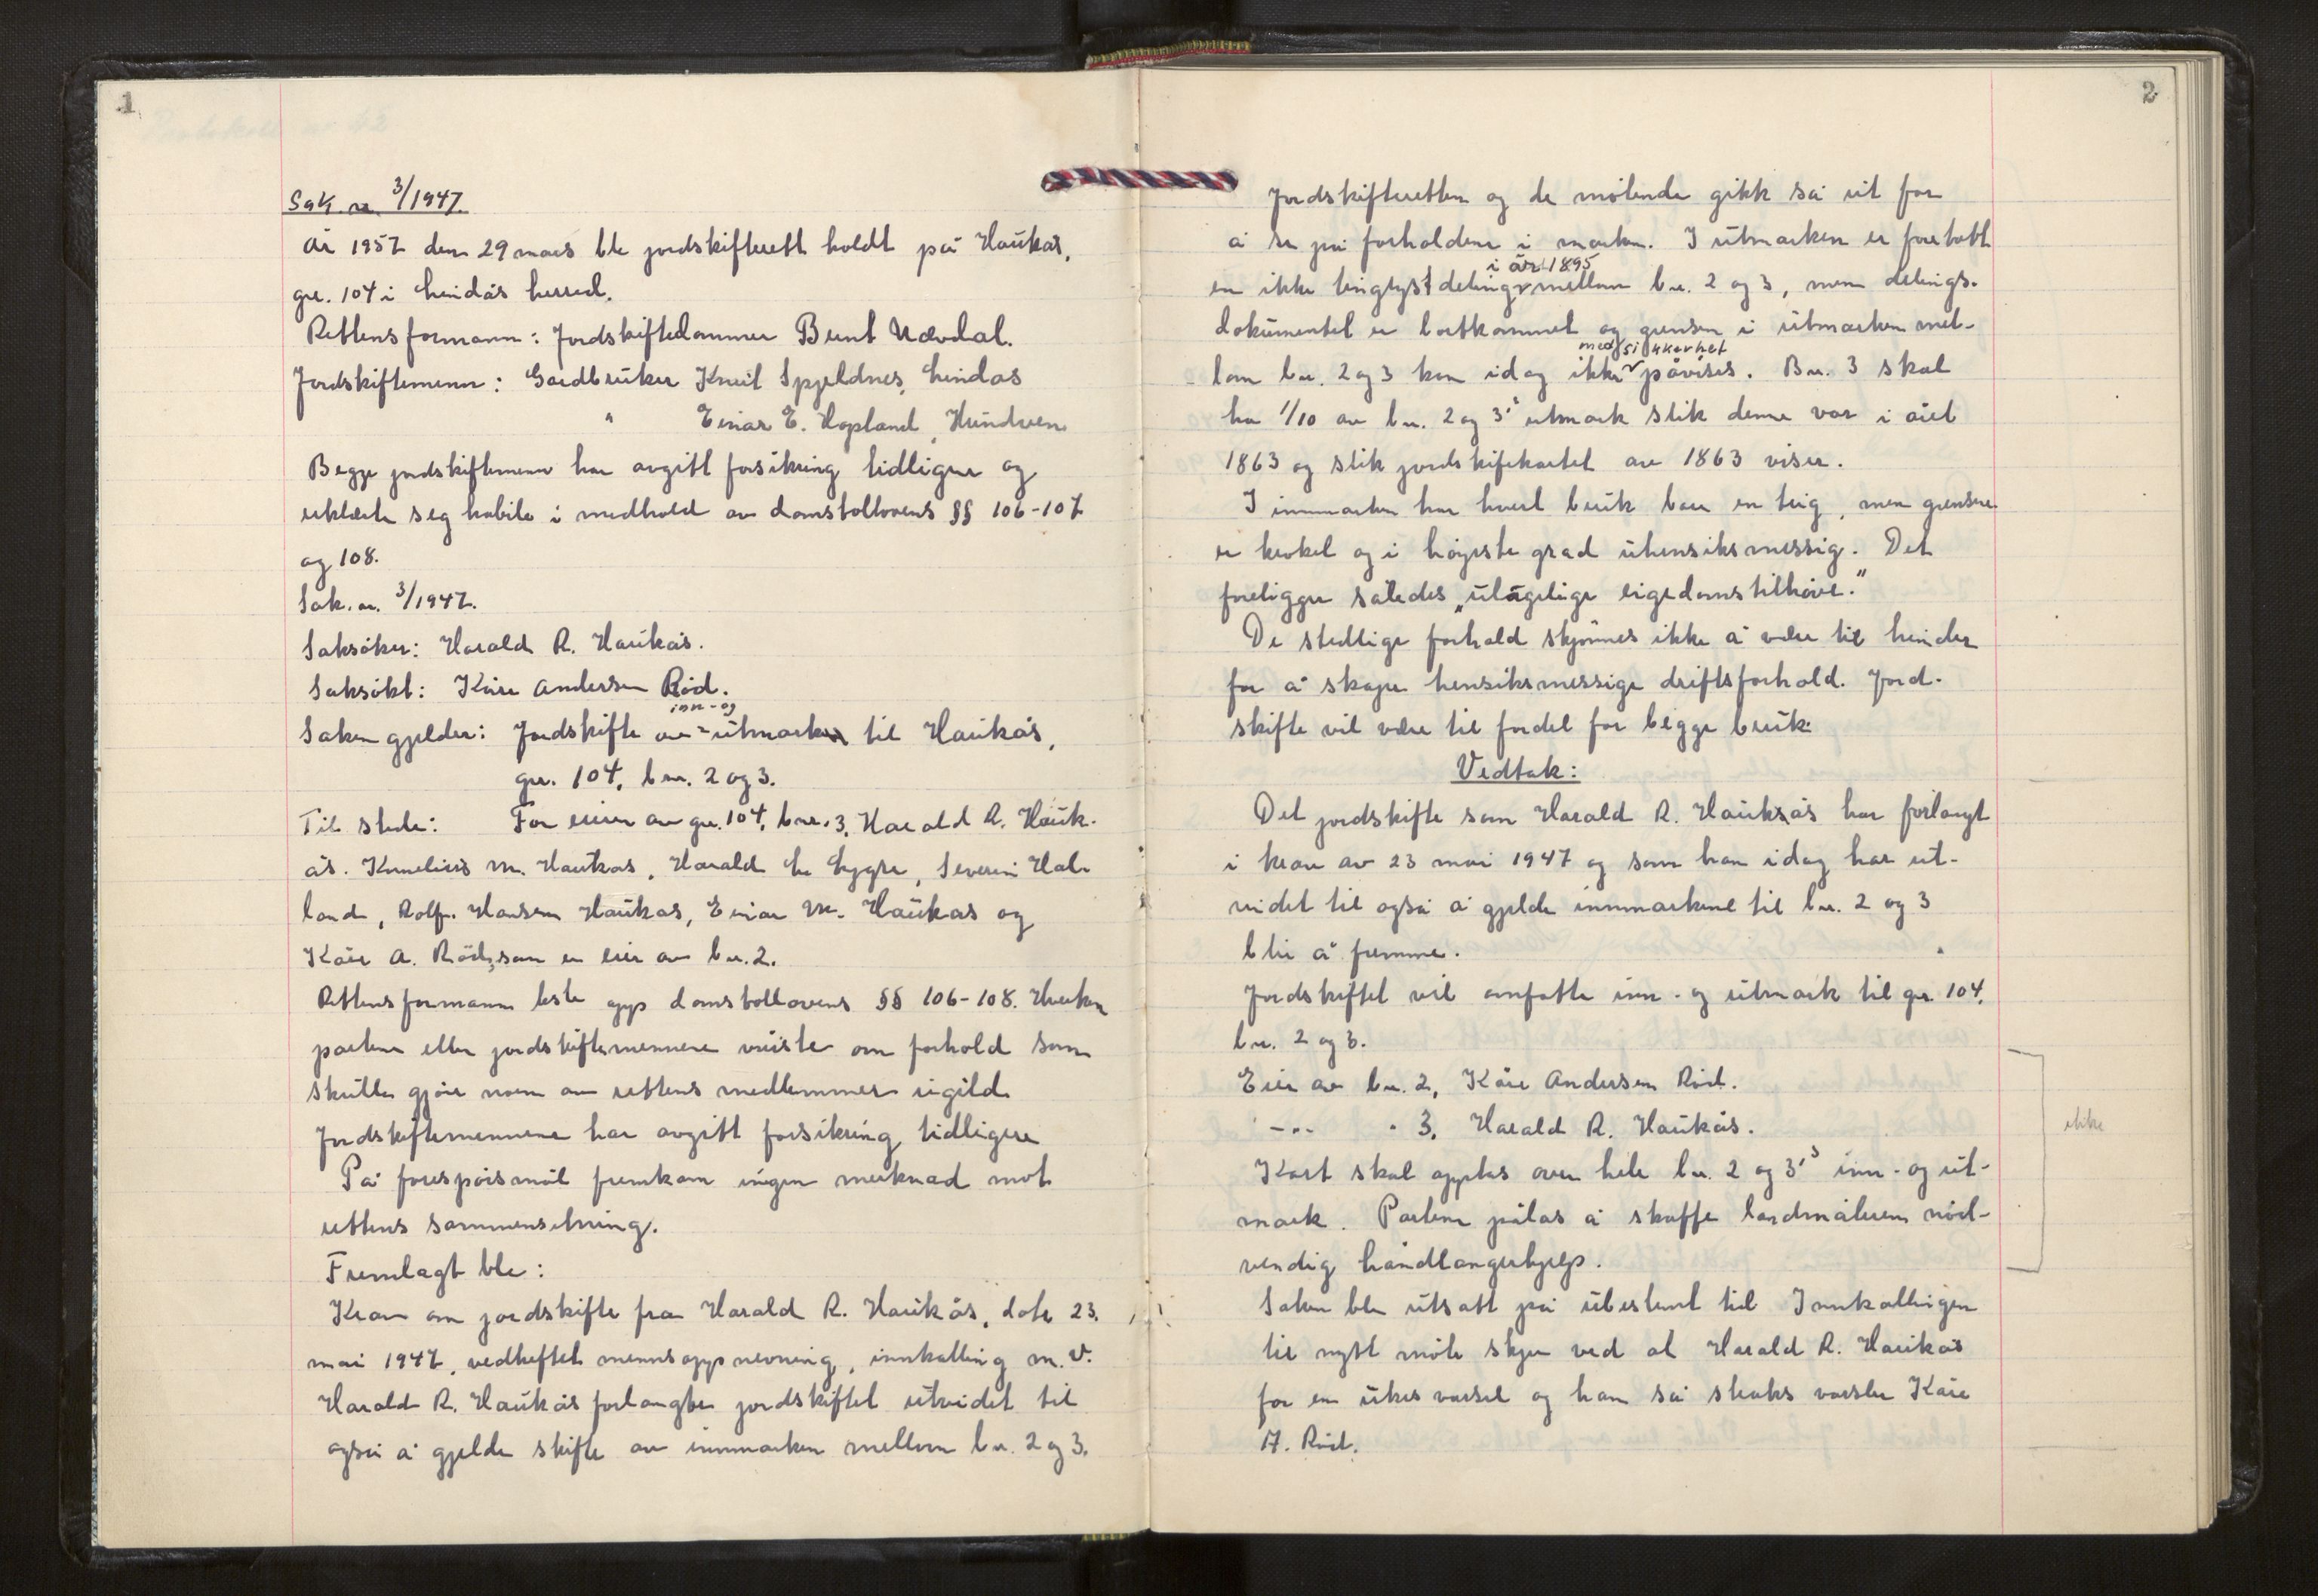 1
Sak nr. 3/1947.
År 1957 den 29 mars ble jordskifterett holdt på Haukås,
gnr. 104 i Lindås herred.
Rettens formann: Jordskiftedommer Bernt Nævdal.
Jordskiftemenn: Gardbruker Knut Spjeldnes, Lindås
" Einar E. Hopland, Hundven
Begge jordskiftemenn har avgitt forsikring tidligere og
erklærte seg habile i medhold av domstollovens §§ 106-107
og 108.
Sak. nr. 3/1947.
Saksøker: Harald R. Haukås.
Saksøkt: Kåre Andersen Rød.
Saken gjelder: Jordskifte av inn- og utmark til Haukås,
gnr. 104, bnr. 2 og 3.
Til stede: For eieren av gnr. 104, bnr. 3, Harald R. Hauk-
ås. Kornelius M. Haukås, Harald L. Lygre, Severin Hal-
land, Rolf Hansen Haukås, Einar M. Haukås og
Kåre A. Rød, som er eier av bnr. 2.
Rettens formann leste opp domstollovens §§ 106-108. Hverken
partene eller jordskiftemennene visste om forhold som
skulle gjøre noen av rettens medlemmer ugild.
Jordskiftemennene har avgitt forsikring tidligere
På forespørsmål fremkom ingen merknad mot
rettens sammensetning.
Fremlagt ble:
Krav om jordskifte fra Harald R. Haukås, dat. 23.
mai 1947, vedheftet mennsoppnevning, innkalling m.v.
Harald R. Haukås forlangte jordskiftet utvidet til
også å gjelde skifte av innmarken mellom bnr. 2 og 3.
2
Jordskifteretten og de møtende gikk så ut for
å se på forholdene i marken. I utmarken er foretatt
i år 1895
en ikke tinglyst deling mellom bnr. 2 og 3, men delings-
dokumentet er bortkommet og grensen i utmarken mel-
med sikkerhet
lom bnr. 2 og 3 kan idag ikke påvises. Bnr. 3 skal
ha 1/10 av bnr. 2 og 3's utmark slik denne var i året
1863 og slik jordskifekartet av 1863 viser.
I innmarken har hvert bruk bare en teig, men grensene
er kroket og i høyeste grad uhensiksmessig. Det
foreligger således "ulagelige eigedomstilhøve."
De stedlige forhold skjønnes ikke å være til hinder
for å skape hensiksmessige driftsforhold. Jord-
skifte vil være til fordel for begge bruk.
Vedtak:
Det jordskifte som Harald R. Haukås har forlangt
i krav av 23 mai 1947 og som han idag har ut-
videt til også å gjelde innmarkene til bnr. 2 og 3
blir å fremme.
Jordskiftet vil omfatte inn- og utmark til gnr. 104,
bnr. 2 og 3.
Eier av bnr. 2, Kåre Andersen Rød.
-"- " 3, Harald R. Haukås.
Kart skal opptas over hele bnr. 2 og 3's inn- og ut-
mark. Partene pålas å skaffe landmåleren nød-
vendig håndlangerhjelp.
ikke
Saken ble utsatt på ubestemt tid Innkallingen
til nytt møte skjer ved at Harald R. Haukås
får en ukes varsel og han så straks varsler Kåre
A. Rød.